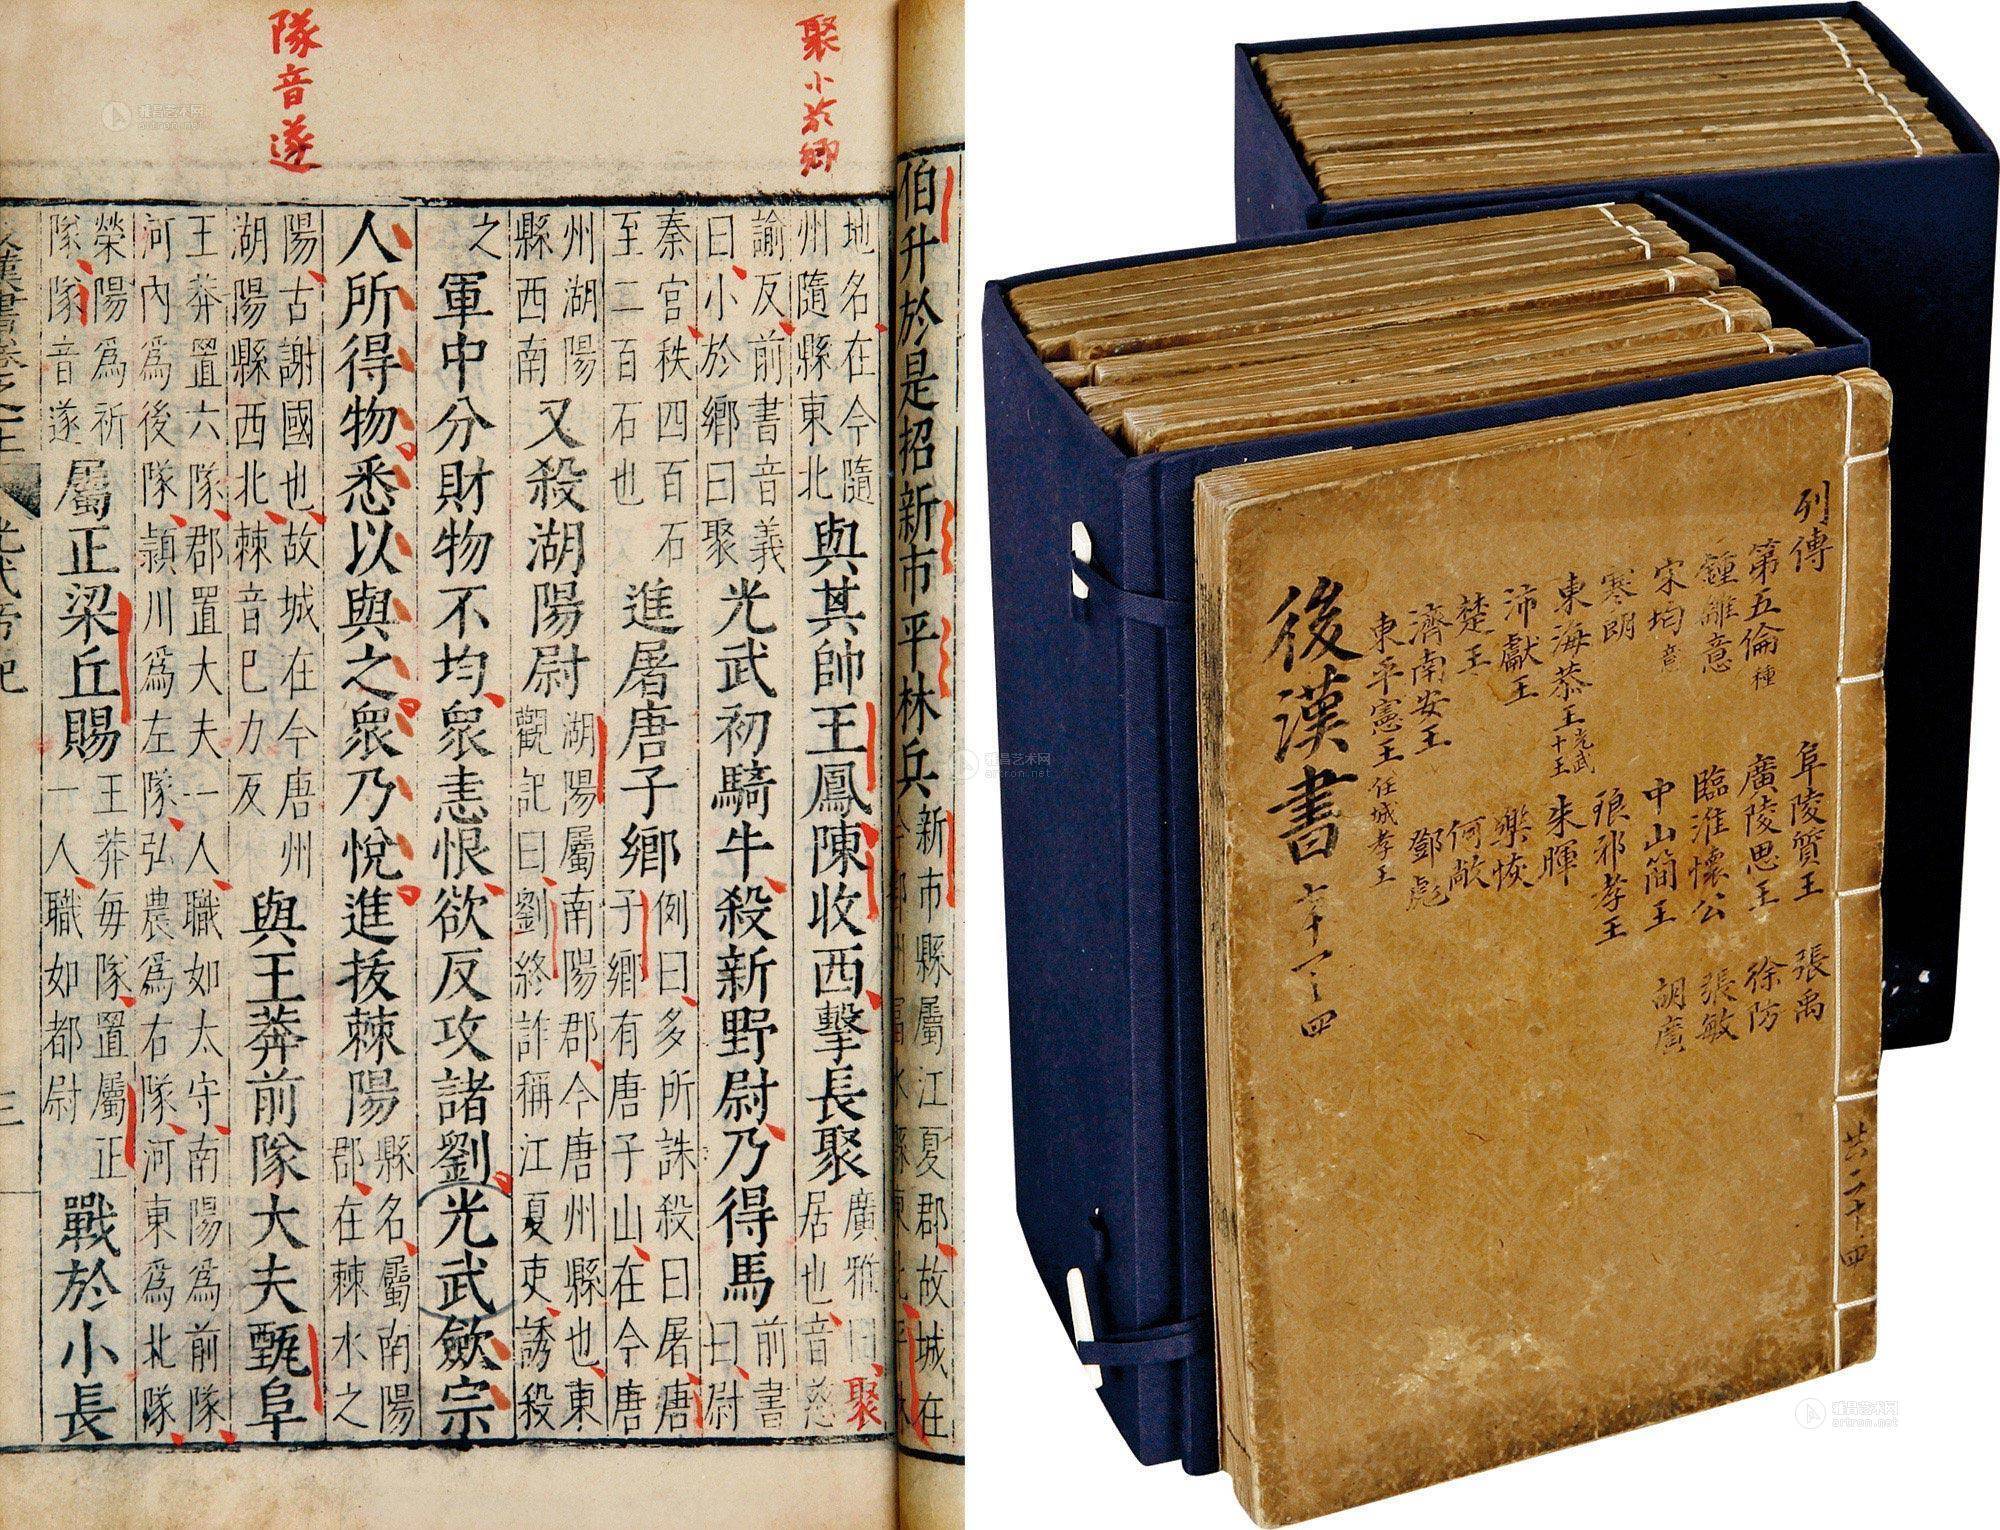 聚小於鄉
隊音遂
伯升於是招新市平林兵
新市縣屬江夏郡故城在
今郢州富水縣東北平林
地名在今隨
州隨縣東北
與其帥王鳳陳收西擊長聚
廣雅曰聚
居也音慈
諭反前書音義
曰小於鄉曰聚
光武初騎牛殺新野尉乃得馬
前書
曰尉
秦官秩四百石
至二百石也
進屠唐子鄉
例曰多所誅殺曰屠唐
子鄉有唐子山在今唐
州湖陽
縣西南
又殺湖陽尉
湖陽屬南陽郡今唐州縣也東
觀記曰劉終詐稱江夏吏誘殺
之
軍中分財物不均眾恚恨欲反攻諸劉光武斂宗
人所得物悉以與之眾乃悅進拔棘陽
縣名屬南陽
郡在棘水之
陽古謝國也故城在今唐州
湖陽縣西北棘音己力反
與王莽前隊大夫甄阜
王莽置六隊郡置大夫一人職如太守南陽為前隊
河內為後隊潁川為左隊弘農為右隊河東為北隊
滎陽為祈
隊隊音遂
屬正梁丘賜
王莽每隊置屬正
一人職如都尉
戰於小長
漢書卷之一上
光武帝紀
三
列傳
第五倫 種
鍾離意
宋均 意
寒朗
東海恭王 光武十王
沛獻王
楚王
濟南安王
東平憲王 任城孝王
阜陵質王
廣陵思王
臨淮懷公
中山簡王
琅邪孝王
朱暉
樂恢
何敞
鄧彪
張禹
徐防
張敏
胡廣
後漢書
共二十四
雅昌艺术网
artron.net
雅昌艺术网
artron.net
雅昌艺术网
artron.net